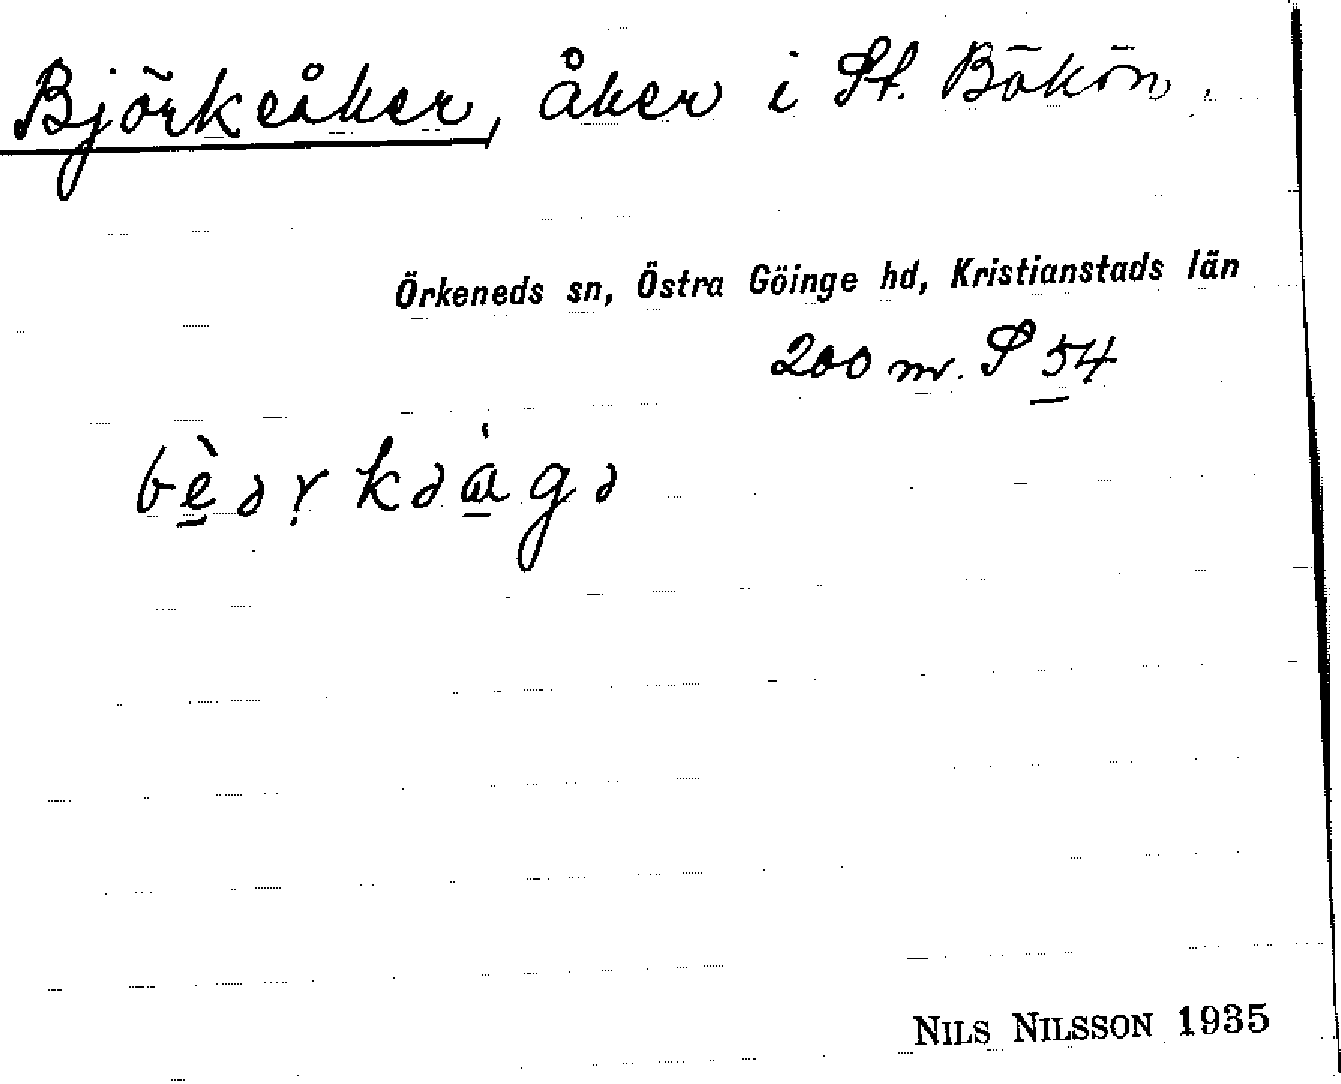 Björkeåker, åker i St. Bökön.
Örkeneds sn, Östra Göinge hd, Kristianstads län
200 m. S 54
bèərkəágə
NILS NILSSON 1935